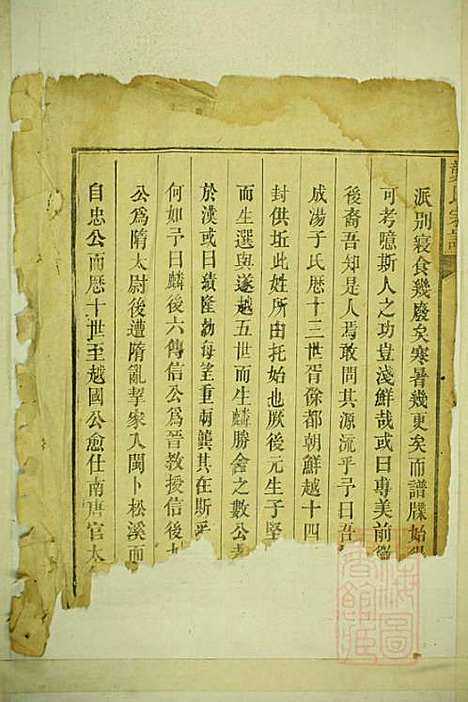 派別寢食幾廢矣寒暑幾更矣而譜牒始
可考噫斯人之功豈淺鮮哉或曰專美前
後裔吾知是人焉敢問其源流乎予曰吾
成湯子氏厯十三世胥徐都朝鮮越十四
封供坵此姓所由托始也厥後元生子堅
而生選與遂越五世而生麟勝舍之數公
於漢或曰績隆勃每望重龔其在斯乎
何如予曰麟後六傳信公爲晉教授信後九
公爲隋太尉後遭隋亂挈家入閩卜松溪而
自忠公而厯十世至越國公愈仕南唐官太